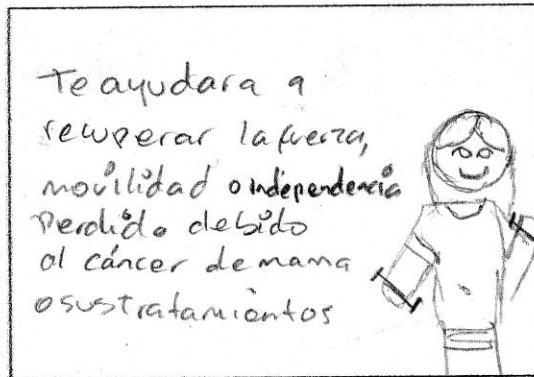 Te ayudara a
recuperar la fuerza,
movilidad o independencia
Perdida debido
al cáncer de mama
o sus tratamientos